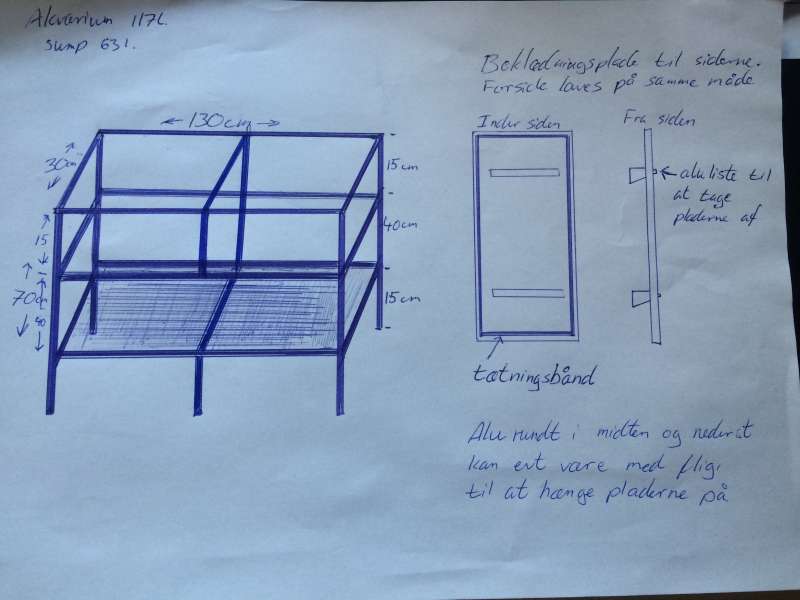 Akvarium 117l.
sump 63l.
Beklædningsplade til siderne.
Forside laves på samme måde
130cm
Inder siden
Fra siden
30cm
15cm
alu liste til
at tage
pladerne af
40cm
15
70cm
15cm
tætningsbånd
Alu rundt i midten og nederst
kan evt være med flig,
til at hænge pladerne på